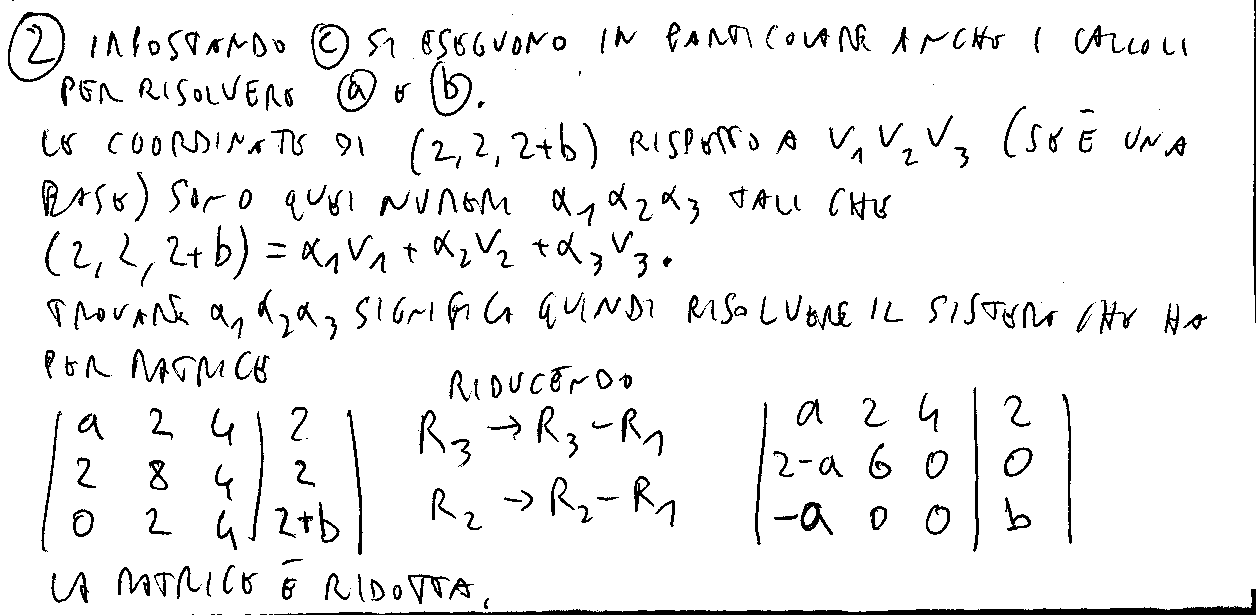 ② IMPOSTANDO ⓒ SI ESEGUONO IN PARTICOLARE ANCHE I CALCOLI
PER RISOLVERE ⓐ E ⓑ.
LE COORDINATE DI (2,2,2+b) RISPETTO A V₁ V₂ V₃ (SE È UNA
BASE) SONO QUEI NUMERI α₁ α₂ α₃ TALI CHE
(2,2,2+b) = α₁V₁ + α₂V₂ + α₃V₃.
TROVARE α₁ α₂ α₃ SIGNIFICA QUINDI RISOLVERE IL SISTEMA CHE HA
PER MATRICE
RIDUCENDO
| a 2 4 | 2 | R₃ → R₃ - R₁ | a 2 4 | 2 |
| 2 8 4 | 2 | R₂ → R₂ - R₁ | 2-a 6 0 | 0 |
| 0 2 4 | 2+b | | -a 0 0 | b |
LA MATRICE È RIDOTTA.